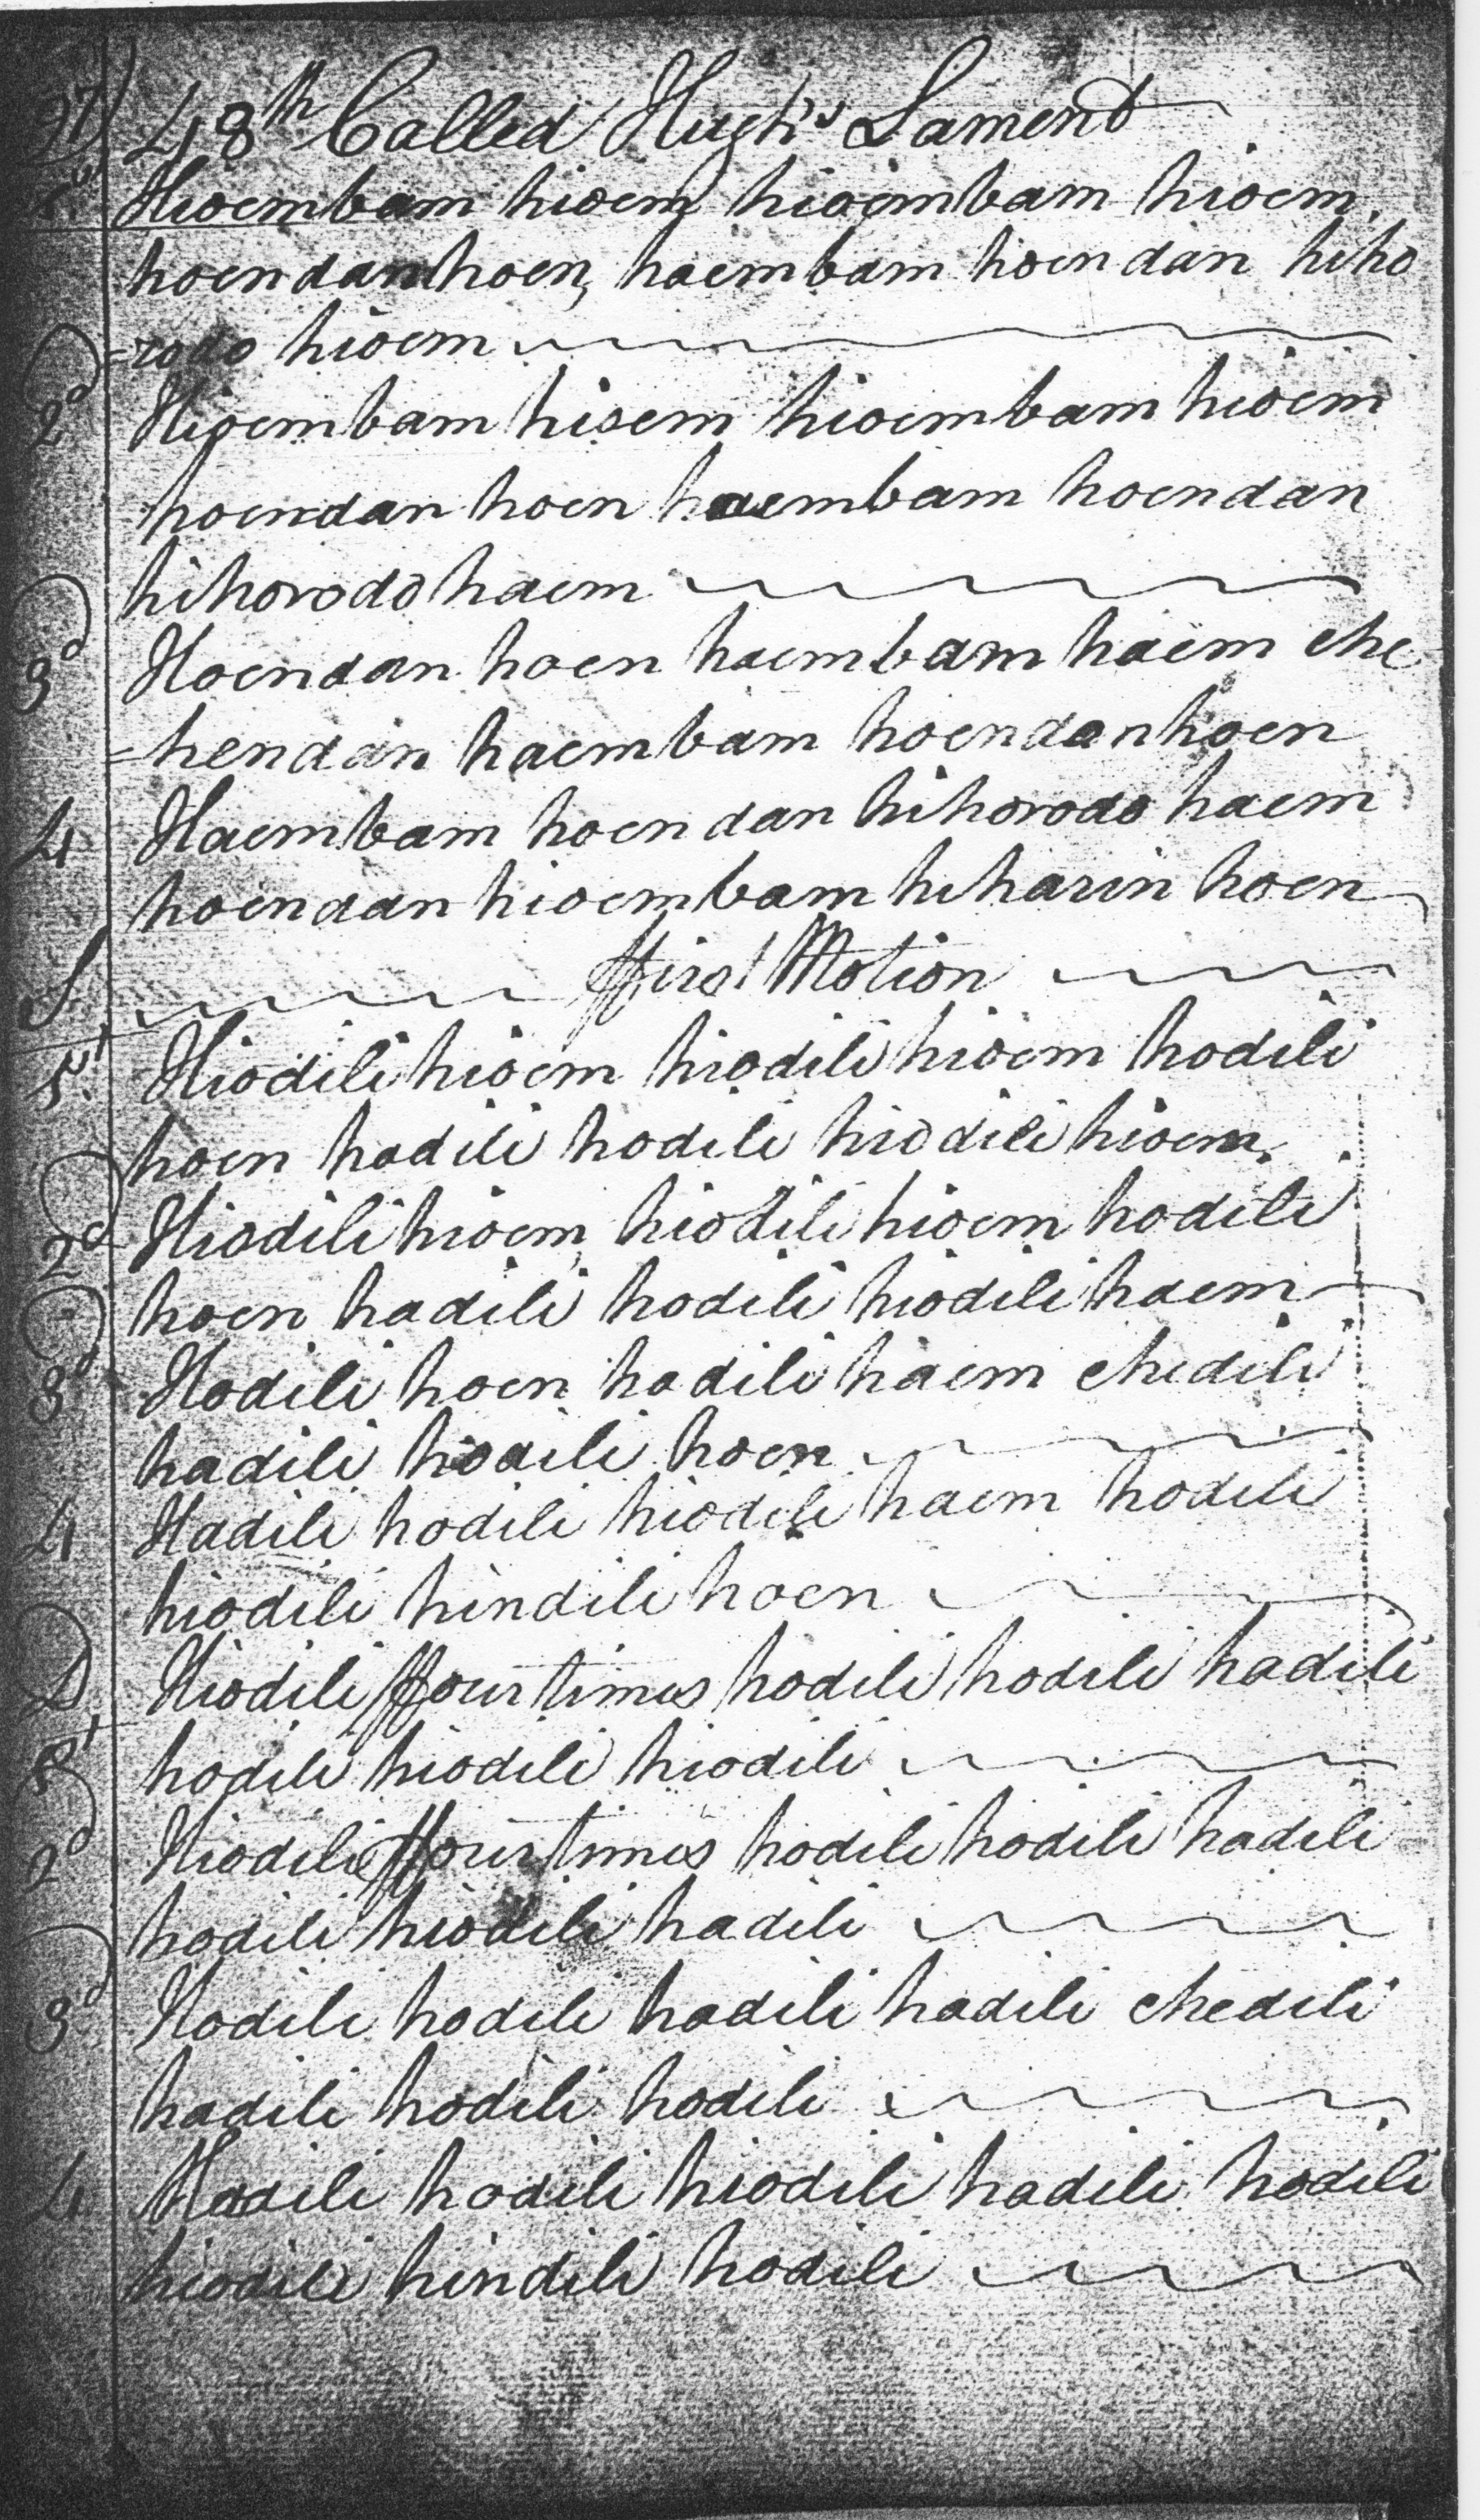 97) 48th Called Hugh's Lament
1st Hioembam hioem hioembam hioem,
hoendanhoen, haembam hoendan hiho
=rodo hioem
2d Hioembam hioem hioembam hioem
hoendan hoen haembam hoendan
hihorodo haem
3d Hoendan hoen haembam haem che
=hendan haembam hoendanhoen
4 Haembam hoendan hihorodo haem
hoendan hioembam hiharin hoen
S ffirst Motion
1st Hiodili hioem hiodili hioem hodili
hoen hadili hodili hiodili hioem.
2d Hiodili hioem, hiodili hioem hodili
hoen hadili hodili hiodili haem
3d Hodili hoen hadili haem chedili
hadili hodili hoen
4 Hadili hodili hiodili haem hodili
hiodili hindili hoen
D Hiodili ffour times hodili hodili hadili
1st hodili hiodili hiodili
2d Hiodili ffour times hodili hodili hadili
hodili hiodili hadili
3d Hodili hodili hadili hadili chedili
hadili hodili hodili
4 Hadili hodili hiodili hadili hodili
hiodili hindili hodili